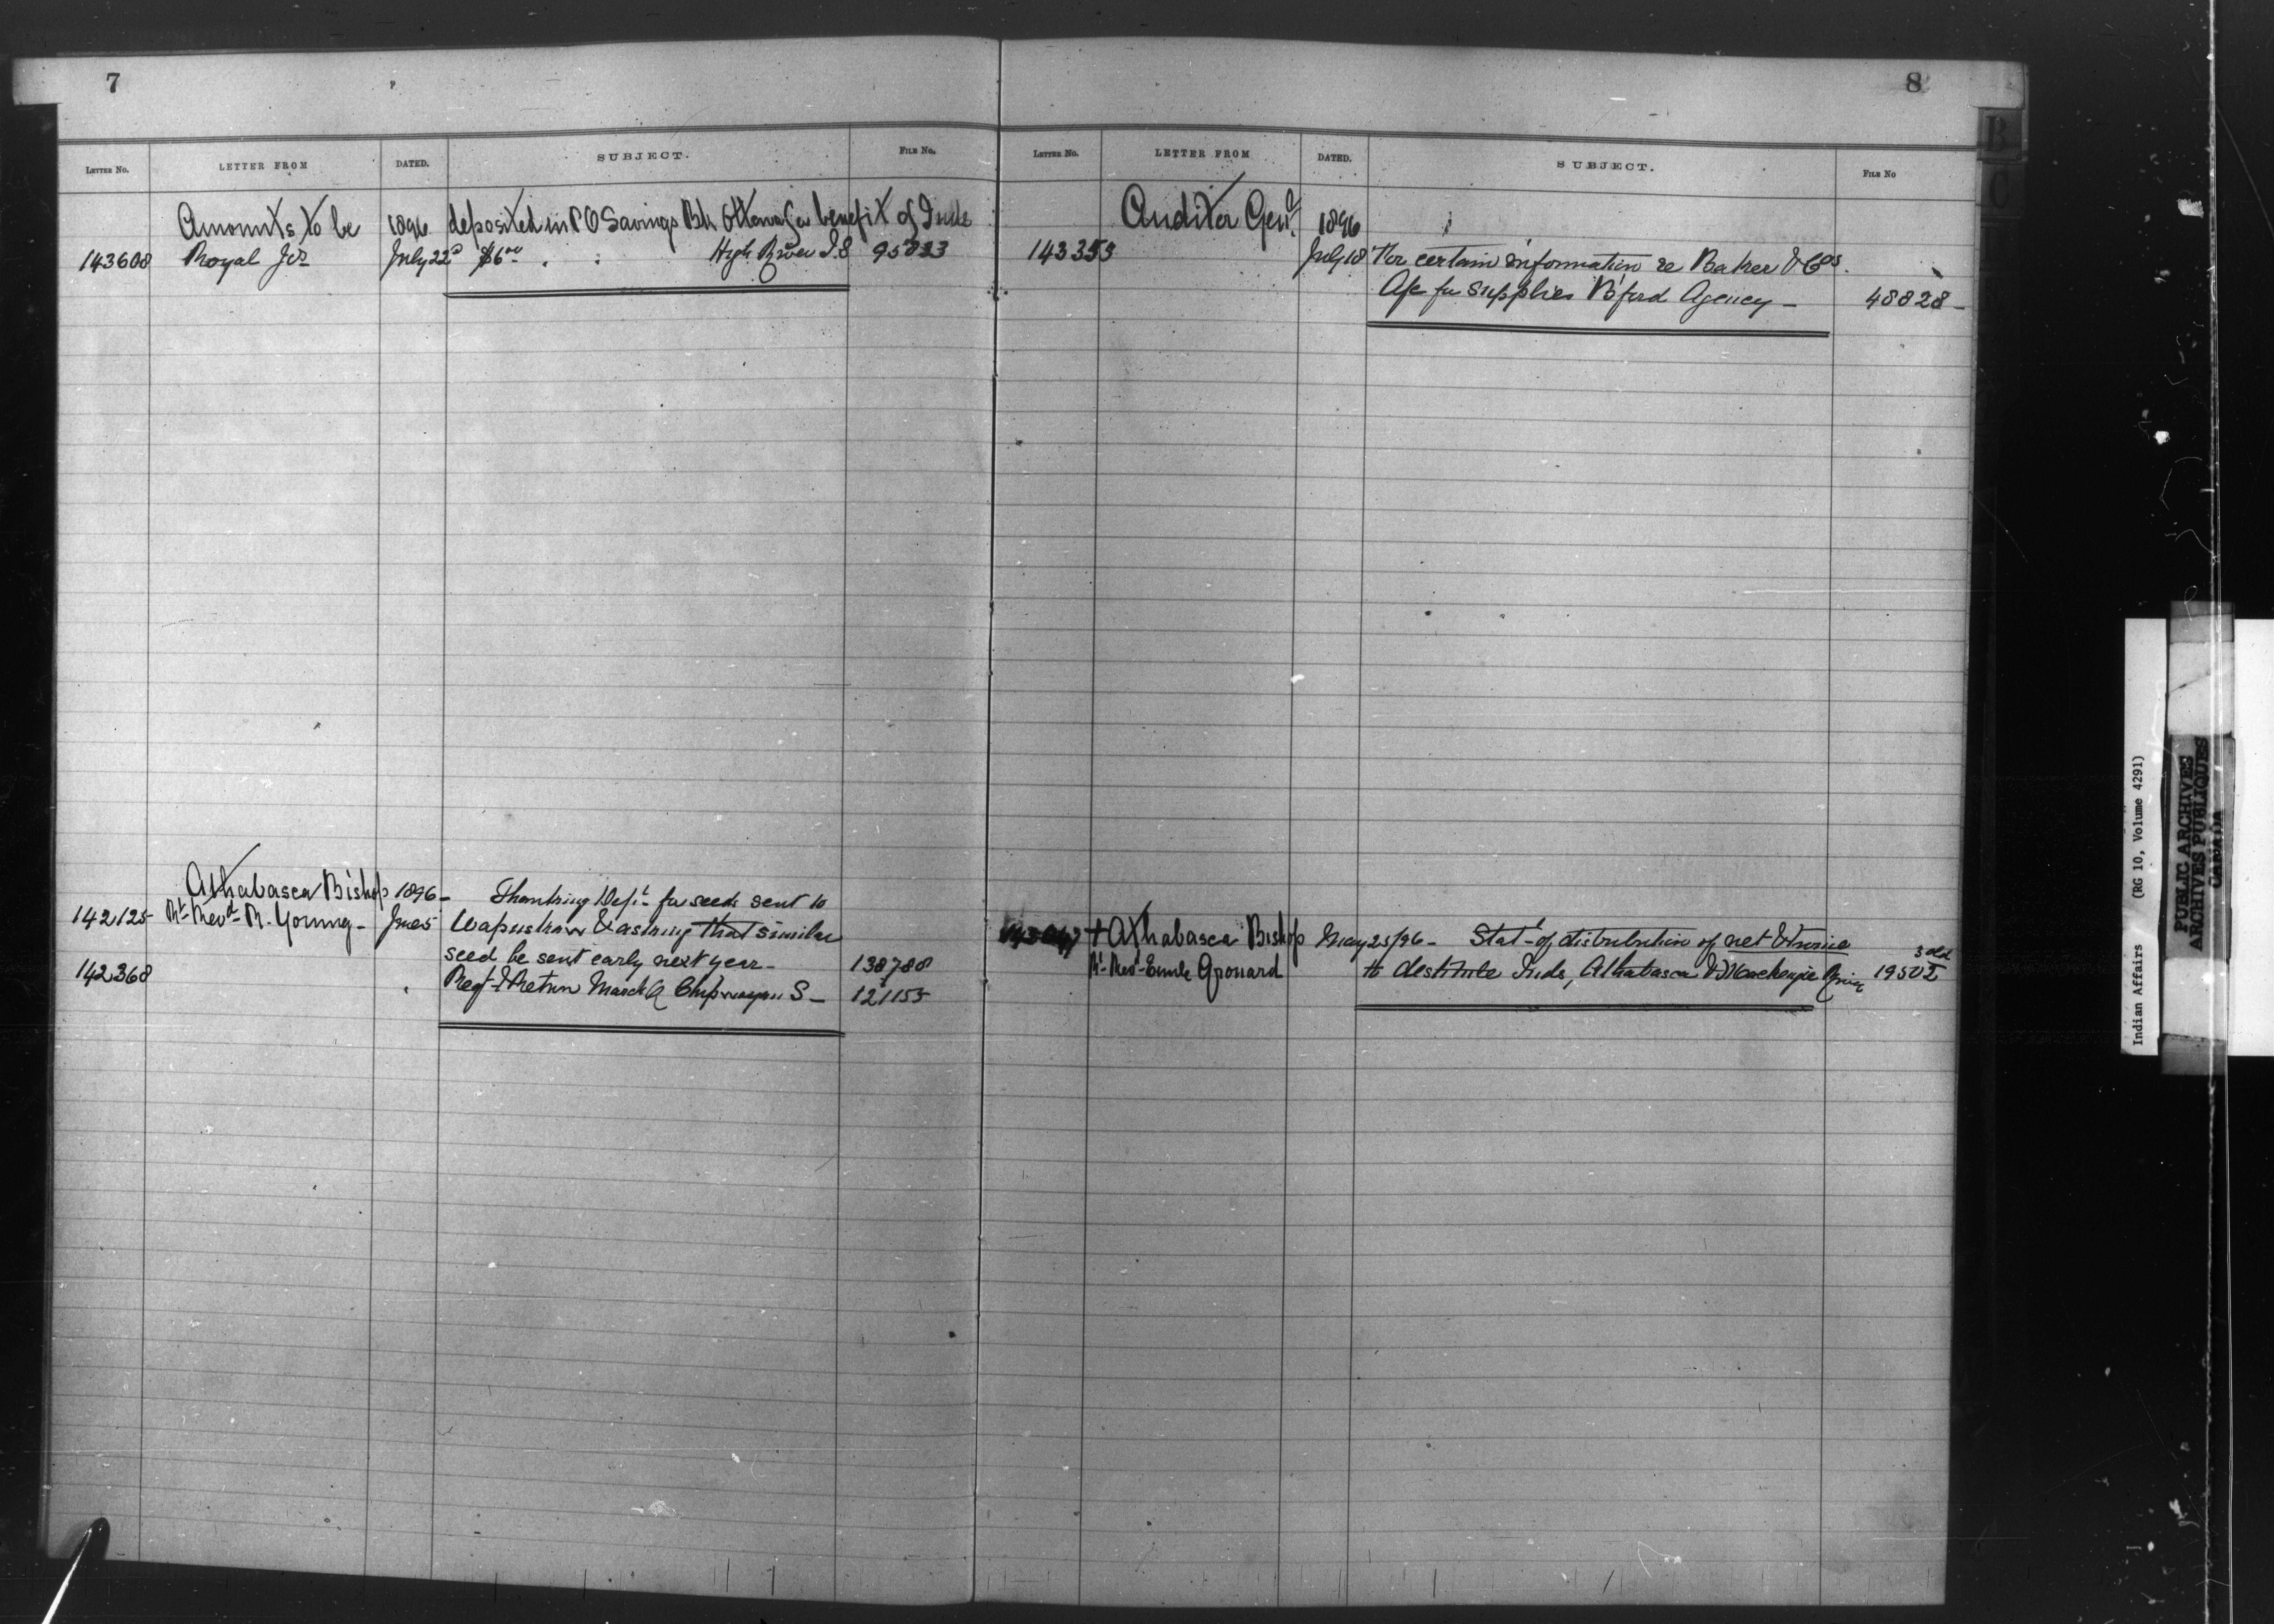 7
LETTER NO. LETTER FROM DATED. SUBJECT. FILE NO.
Amounts to be 1896 deposited in P O Savings Bk Ottawa for benefit of Inds
143608 Royal Jos July 22d $6 00 " " High River I.S 95033
Athabasca Bishop 1896 - Thanking Dept for seeds sent to
142125 Rt Revd R. Young - June 5 Wapuskow & asking that similar
seed be sent early next year - 138788
142368 " Regt & Return March Q Chipwayan S - 121155
8
LETTER NO. LETTER FROM DATED. SUBJECT. FILE NO
Auditor Genl 1896
143353 July 18 For certain information re Baker & Cos.
A/c for supplies B'ford Agency - 48828 -
+ Athabasca Bishop May 25/96 - Stat - of distribution of net & twine
Rt Revd Emile Grouard to destitute Inds, Athabasca & Mackenzie River 19502
B
C
Indian Affairs (RG 10, Volume 4291)
PUBLIC ARCHIVES
ARCHIVES PUBLIQUES
CANADA